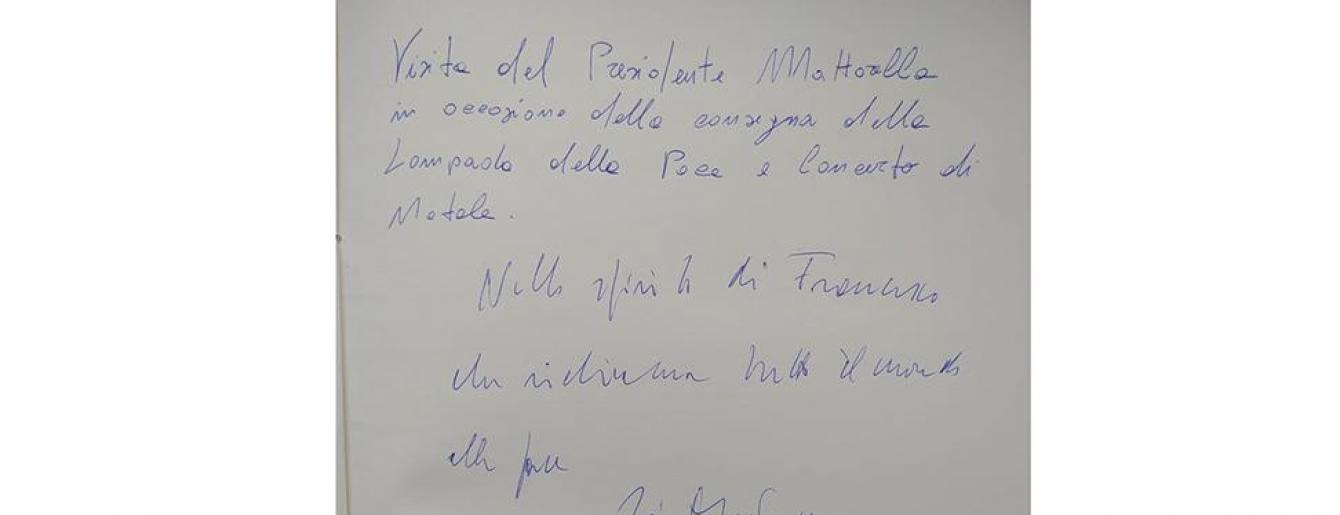 Visita del Presidente Mattarella
in occasione della consegna della
Lampada della Pace e Concerto di
Natale.
Nello spirito di Francesco
che richiama tutto il mondo
alla pace